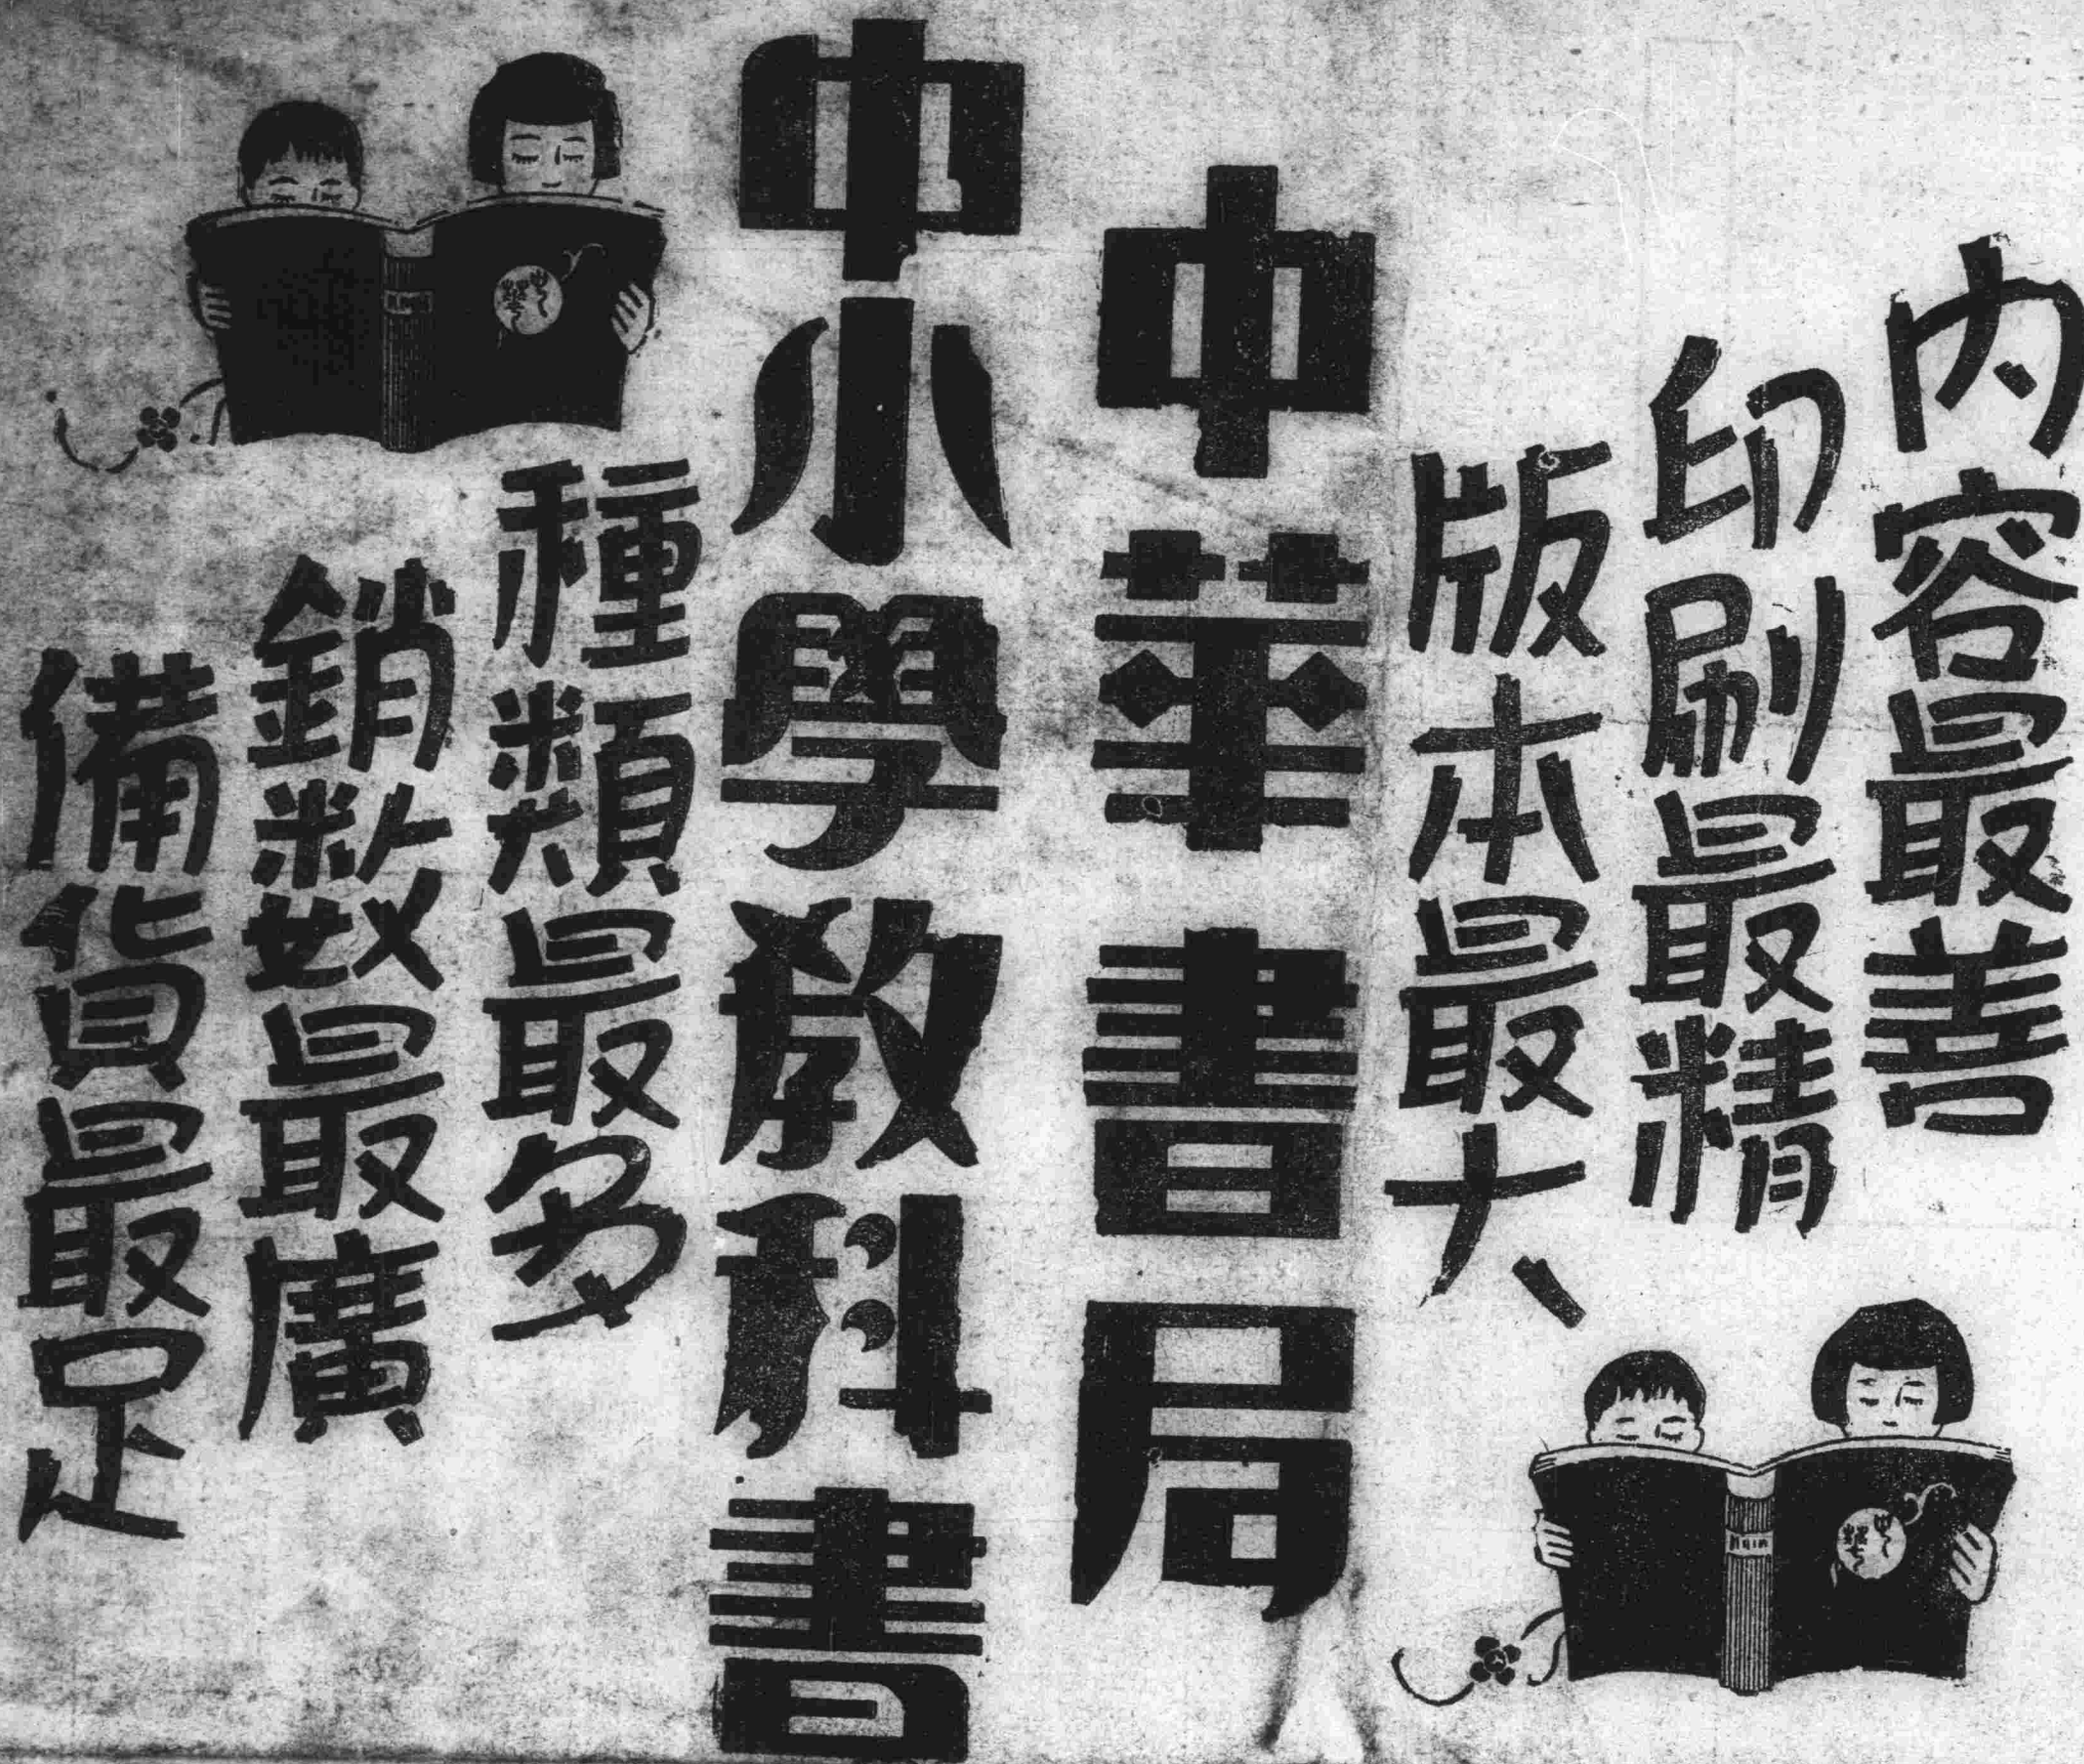 內容最善
印刷最精
版本最大
中華書局
中小學教科書
種類最多
銷數最廣
備貨最足
中華
中華